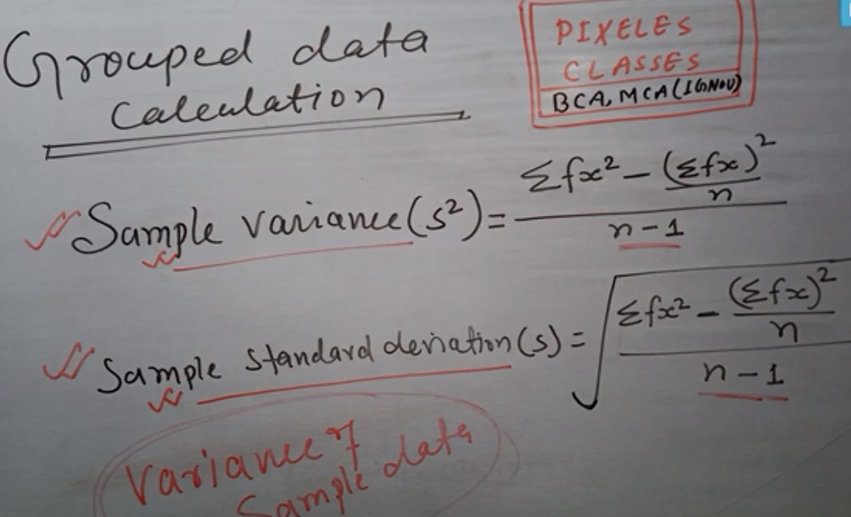 Grouped data
Calculation
PIXELES
CLASSES
BCA, MCA (IGNOU)
Sample variance (s²) = (Σfx² - (Σfx)²/n) / (n-1)
Sample standard deviation (s) = √((Σfx² - (Σfx)²/n) / (n-1))
Variance of
Sample data